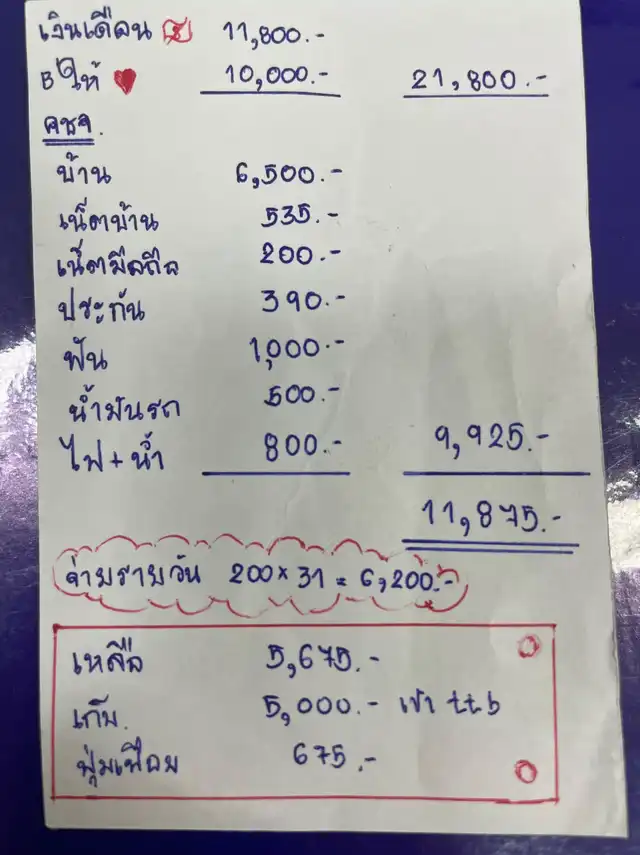 เงินเดือน 11,800.-
B ให้ 10,000.- 21,800.-
คชจ.
บ้าน 6,500.-
เน็ตบ้าน 535.-
เน็ตมือถือ 200.-
ประกัน 390.-
ฟัน 1,000.-
น้ำมันรถ 500.-
ไฟ+น้ำ 800.- 9,925.-
11,875.-
จ่ายรายวัน 200×31 = 6,200.-
เหลือ 5,675.-
เก็บ. 5,000.- เข้า ttb
ฟุ่มเฟือย 675.-